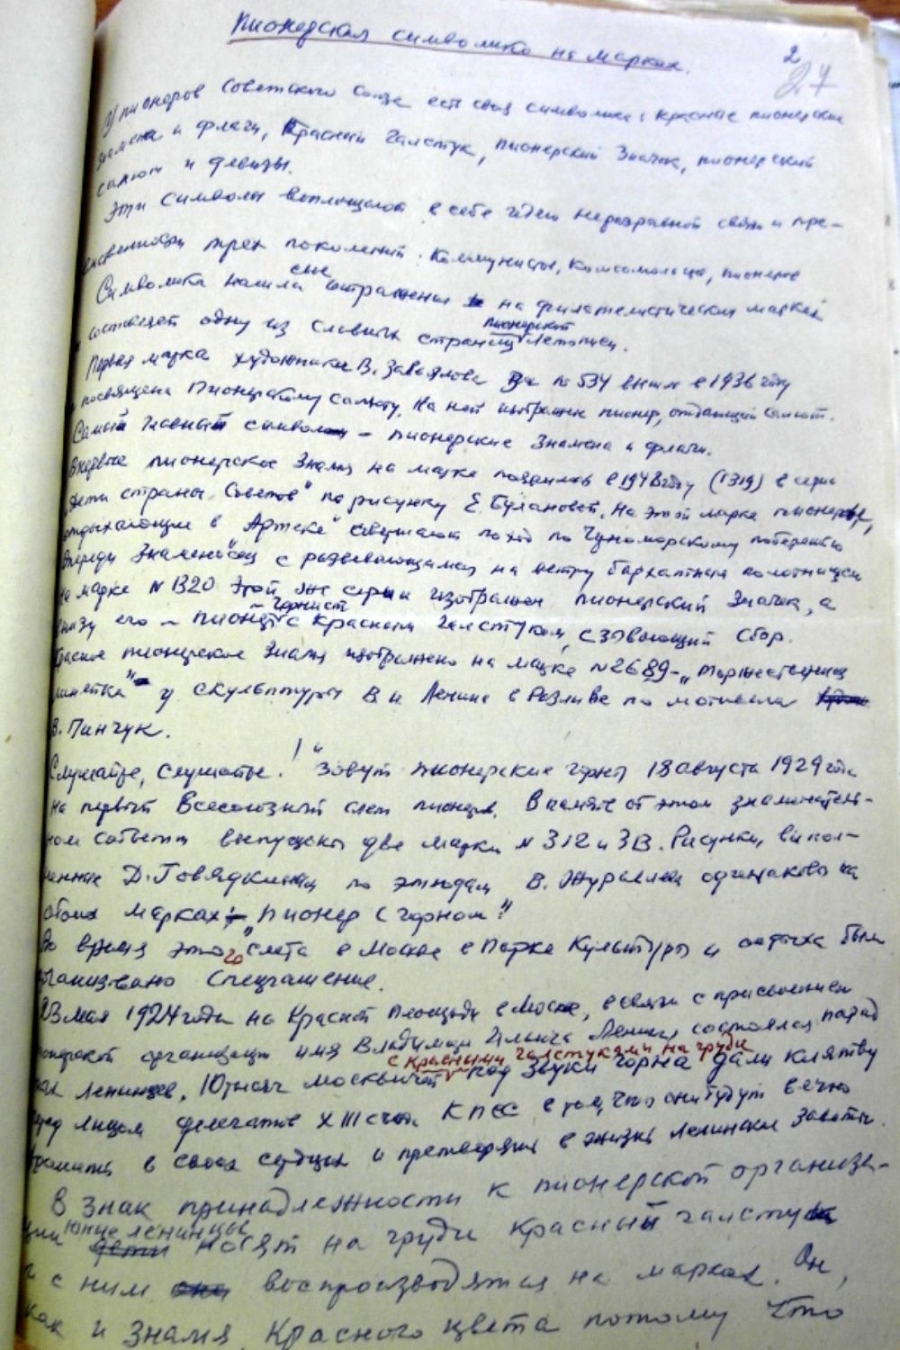 Пионерская символика на марках.
2
27
У пионеров Советского Союза есть своя символика: красные пионерские
знамена и флаги, Красный галстук, пионерский Значок, пионерский
салют и девизы.
Эти символы воплощают в себе идеи неразрывной связи и пре-
емственности трех поколений: Коммунисты, комсомольцы, пионеров
Символика нашла свое отражение на филателистических марках
и составляет одну из славных страниц пионерской летописи.
Первая марка художника В. Завьялова № 534 вышла в 1936 году
и посвящена Пионерскому салюту. На ней изображен пионер, отдающий салют.
Самый главный символ – пионерские Знамена и флаги.
Впервые пионерское Знамя на марке появилось в 1948 году (1319) в серии
"Дети страны Советов" по рисунку Е. Булановой. На этой марке пионеры,
отдыхающие в "Артеке" совершают поход по Черноморскому побережью
Впереди Знаменосец с развевающимся на ветру бархатным полотнищем
На марке № 1320 этой же серии изобра­жен пионерский Значок, а
внизу его – пионер-горнист с Красным галстуком, созывающий сбор.
Красное пионерское Знамя изображено на марке № 2689 – "Торжественная
линейка" у скульптуры В.И. Ленина в Разливе по мотивам
В. Пинчук.
Слушайте, слушайте! "Зовут пионерские горны 18 августа 1929 года
на первый Всесоюзный слет пионеров. В память об этом знаменатель-
ном событии выпущены две марки № 312 и 313. Рисунки, выпол-
ненные по этюдам В. Журавлева одинаковы на
обоих марках: "Пионер с горном"
Во время этого слета в Москве в Парке Культуры и отдыха было
организовано Спецгашение.
23 мая 1924 года на Красной Площади в Москве, в связи с присвоением
пионерской организации имя Владимира Ильича Ленина состоялся парад
юных ленинцев. 10 тысяч москвичей с красными галстуками на груди под звуки горна дали клятву
перед лицом делегатов XIII съезда КПСС в том, что они будут вечно
хранить в своих сердцах и претворять в жизнь Ленинские заветы.
В знак принадлежности к пионерской организа-
ции юные ленинцы носят на груди Красный галстук
и с ним воспроизводятся на марках. Он,
как и Знамя, Красного цвета потому что